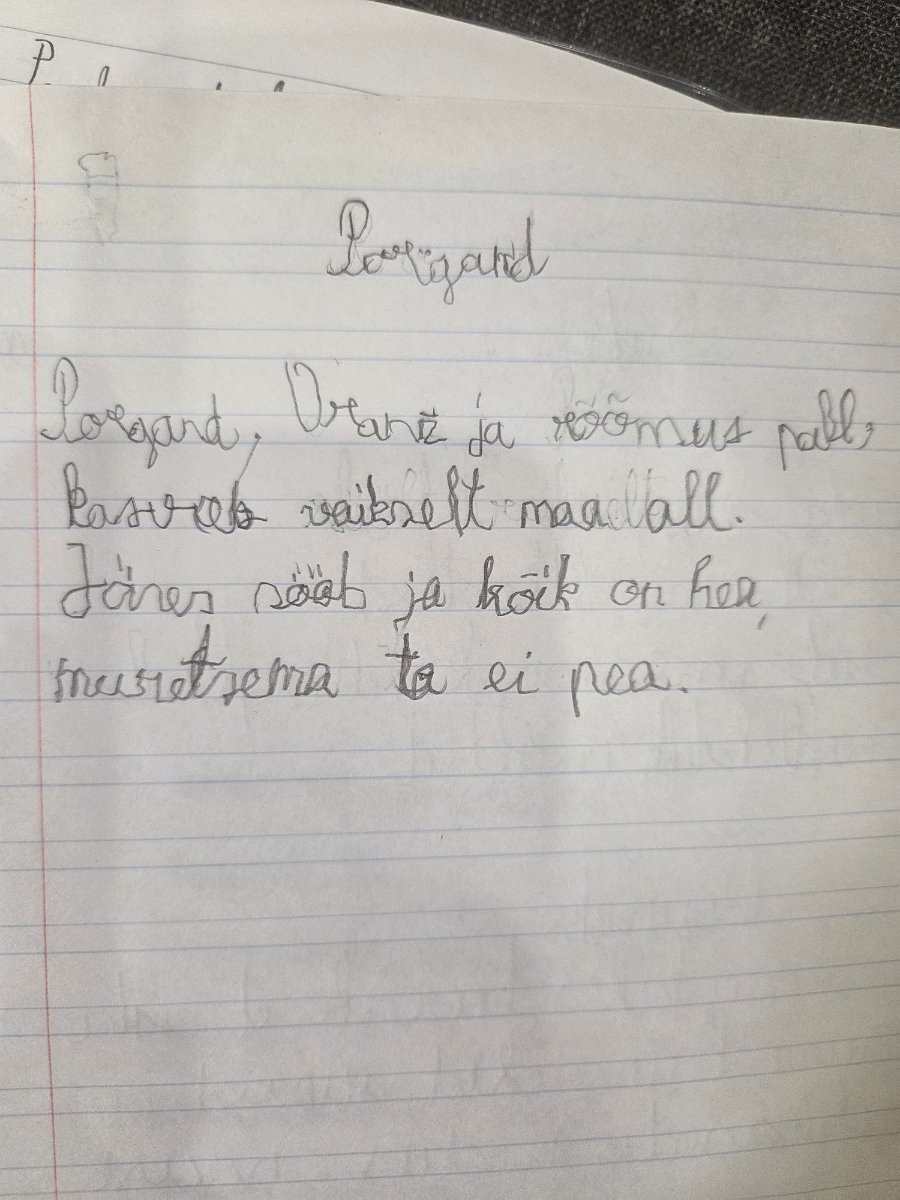 P
Porgand
Porgand, Oranž ja rõõmus pall,
kasvab vaikselt maa all.
Jänes sööb ja kõik on hea,
muretsema ta ei pea.